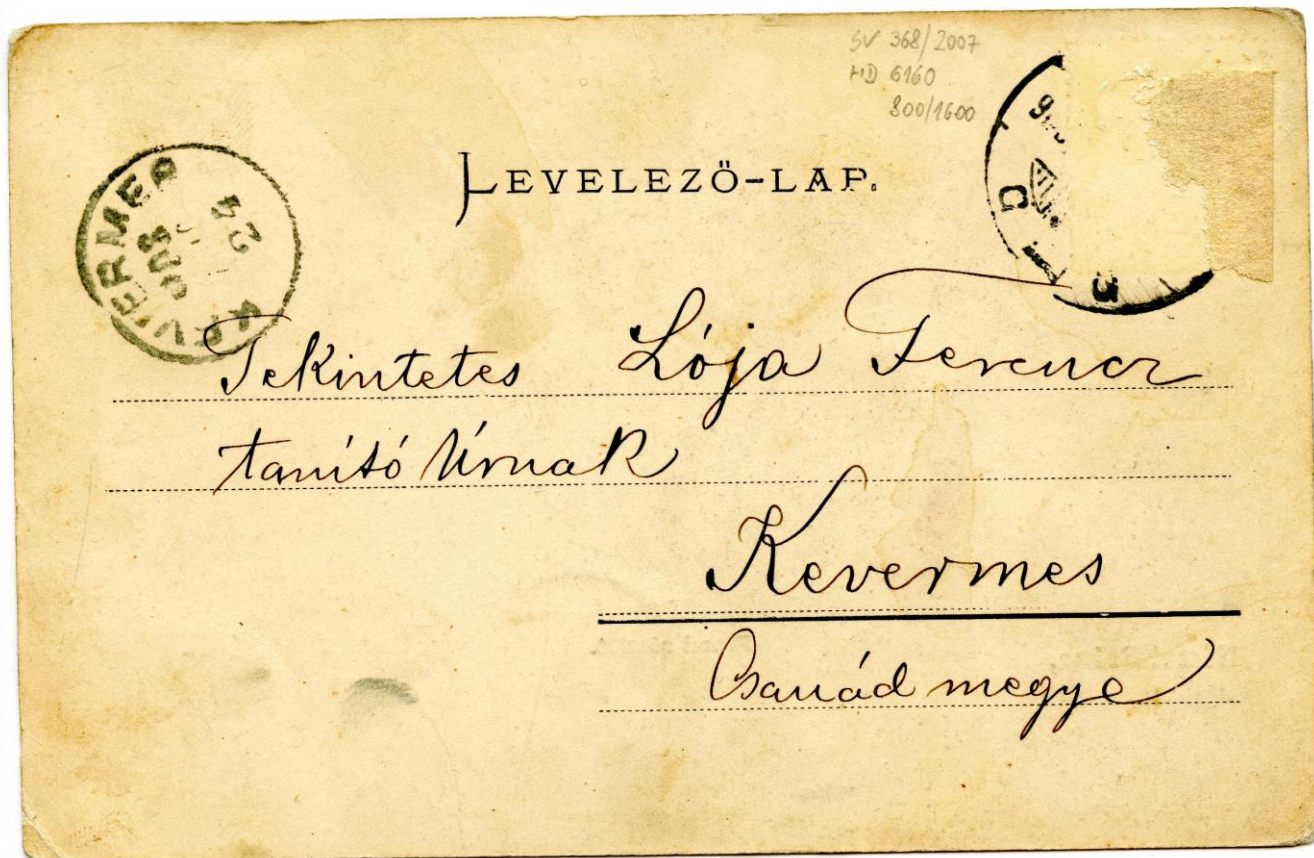 SV 368/2007
MD 6160
800/1600
LEVELEZŐ-LAP.
KEVERMES
24
Tekintetes Lója Ferencz
tanító Úrnak
Kevermes
Csanád megye